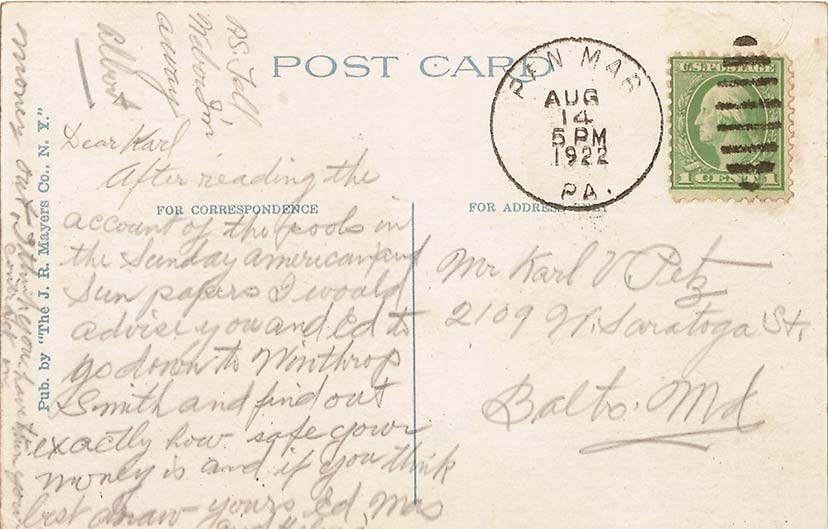 POST CARD
PEN MAR
AUG
14
5 PM
1922
PA.
U.S. POSTAGE
1 CENT 1
FOR CORRESPONDENCE
FOR ADDRESS ONLY
Pub. by "The J. R. Mayers Co., N. Y."
Dear Karl
After reading the
account of the pools in
the Sunday american and
Sun papers I would
advise you and Ed to
go down to Winthrop
Smith and find out
exactly how safe your
money is and if you think
best draw yours, Ed, Mas
and
money out
Albert
PS Tell
I'm
away
Mr Karl V Petz
2109 W. Saratoga St,
Balto. Md